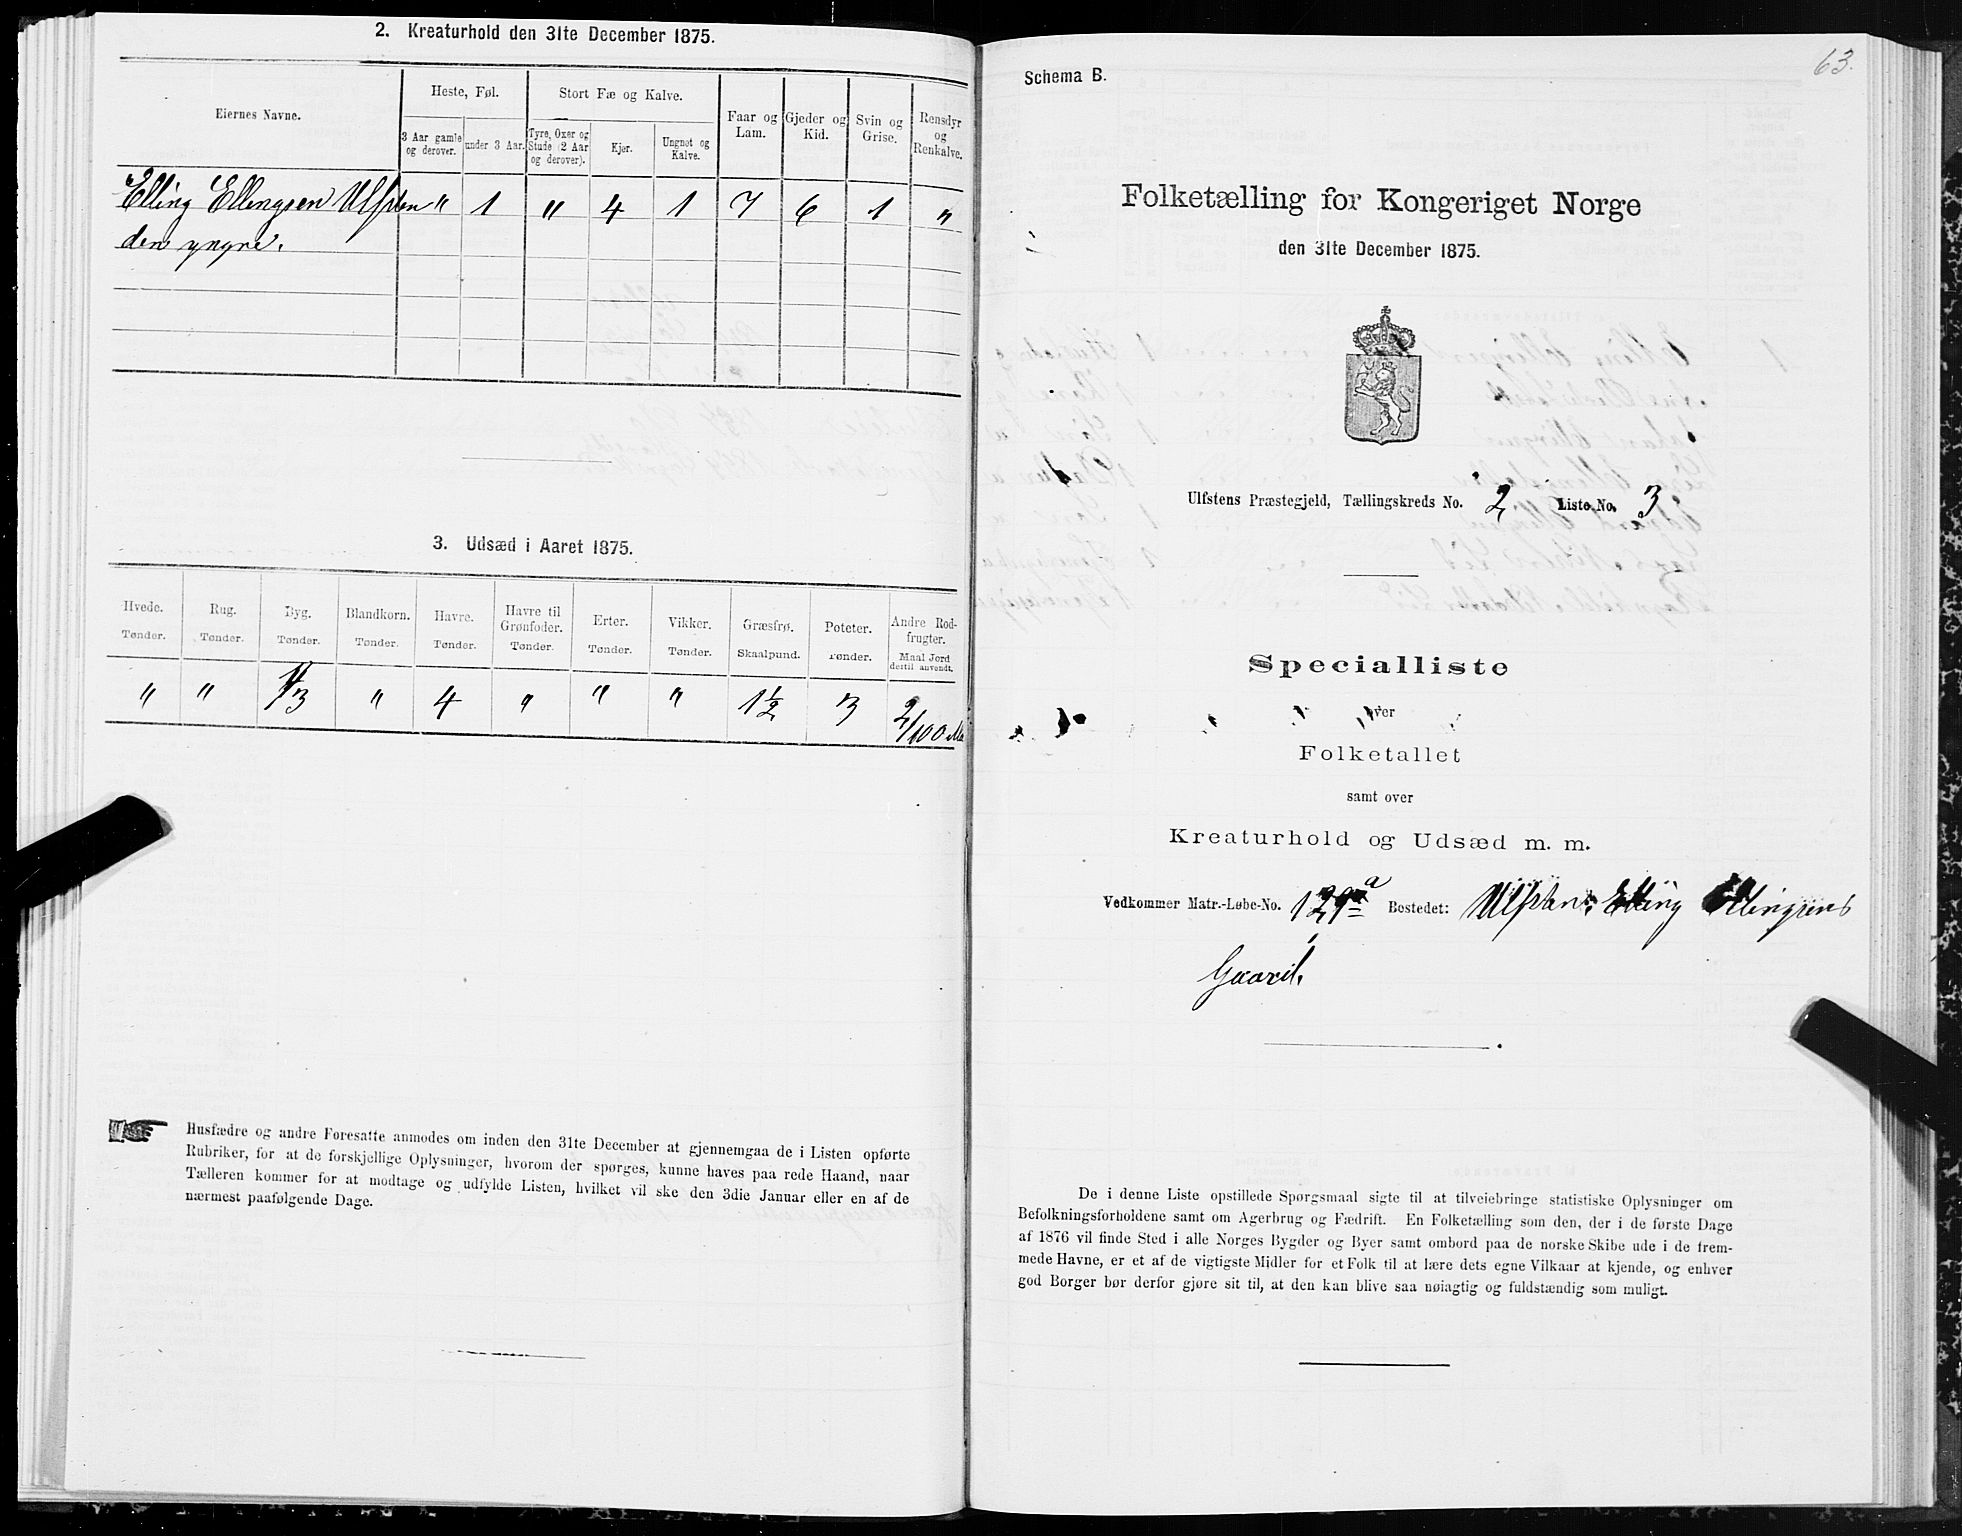 2. Kreaturhold den 31te December 1875.
Eiernes Navne.
Heste, Føl.
Stort Fæ og Kalve.
Faar og Lam.
Gjeder og Kid.
Svin og Grise.
Rensdyr og Renkalve.
3 Aar gamle og derover.
under 3 Aar.
Tyre, Oxer og Stude (2 Aar og derover).
Kjer.
Ungnøt og Kalve.
Elling Ellingsen Ulsten " 1 " 4 1 7 6 1 "
den yngre.
3. Udsæd i Aaret 1875.
Hvede. Rug. Byg. Blandkorn. Havre. Havre til Grønfoder. Erter. Vikker. Græsfrø. Poteter. Andre Rodfrugter.
Tønder. Tønder. Tønder. Tønder. Tønder. Tønder. Tønder. Tønder. Skaalpund. Tønder. Maal Jord dertil anvendt.
" " 1/3 " 4 " " " 1 1/2 3 2/100 Ma
Husfædre og andre Foresatte anmodes om inden den 31te December at gjennemgaa de i Listen opførte
Rubriker, for at de forskjellige Oplysninger, hvorom der spørges, kunne haves paa rede Haand, naar
Tælleren kommer for at modtage og udfylde Listen, hvilket vil ske den 3die Januar eller en af de
nærmest paafølgende Dage.
63.
Schema B.
Folketælling for Kongeriget Norge
den 31te December 1875.
Ulfstens Præstegjeld, Tællingskreds No. 2 Liste No. 3
Specialliste
over
Folketallet
samt over
Kreaturhold og Udsæd m. m.
Vedkommer Matr.-Løbe-No. 129a Bostedet: Ulsten, Elling Ellingsens
Gaard.
De i denne Liste opstillede Spørgsmaal sigte til at tilveiebringe statistiske Oplysninger om
Befolkningsforholdene samt om Agerbrug og Fædrift. En Folketælling som den, der i de første Dage
af 1876 vil finde Sted i alle Norges Bygder og Byer samt ombord paa de norske Skibe ude i de frem-
mede Havne, er et af de vigtigste Midler for et Folk til at lære dets egne Vilkaar at kjende, og enhver
god Borger bør derfor gjøre sit til, at den kan blive saa nøiagtig og fuldstændig som muligt.